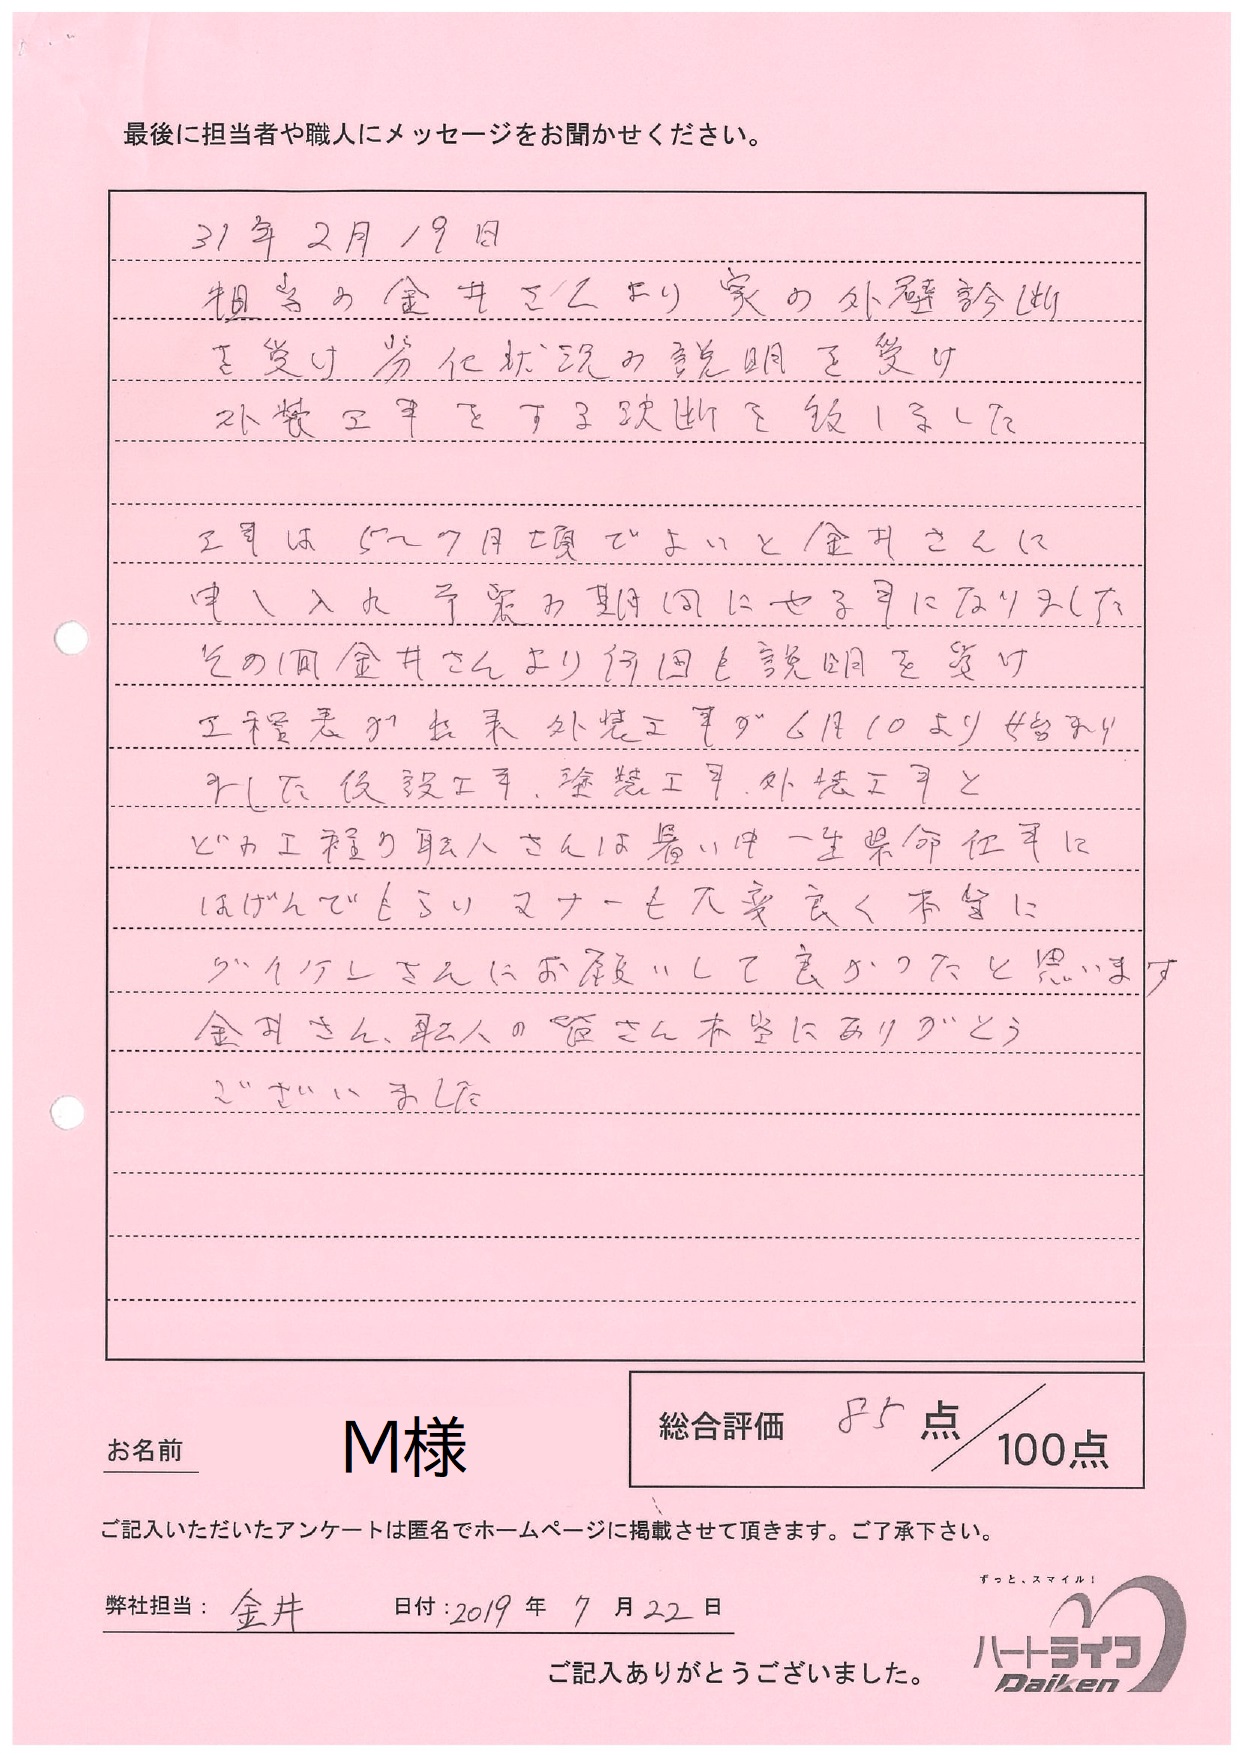 最後に担当者や職人にメッセージをお聞かせください。
31年2月19日
担当の金井さんより家の外壁診断
を受け劣化状況の説明を受け
外装工事をする決断を致しました
工事は5〜7月頃でよいと金井さんに
申し入れ予定の期間にやる事になりました
その間金井さんより何回も説明を受け
工程表が出来外装工事が6月10より始まり
ました仮設工事、塗装工事、外装工事と
どの工程の職人さんは暑い中一生県命仕事に
はげんでもらいマナーも大変良く本当に
ダイケンさんにお願いして良かったと思います
金井さん、職人の皆さん本当にありがとう
ございました
お名前 M様
総合評価 85点/100点
ご記入いただいたアンケートは匿名でホームページに掲載させて頂きます。ご了承下さい。
弊社担当： 金井 日付：2019年7月22日
ずっと、スマイル！
ハートライフ
Daiken
ご記入ありがとうございました。